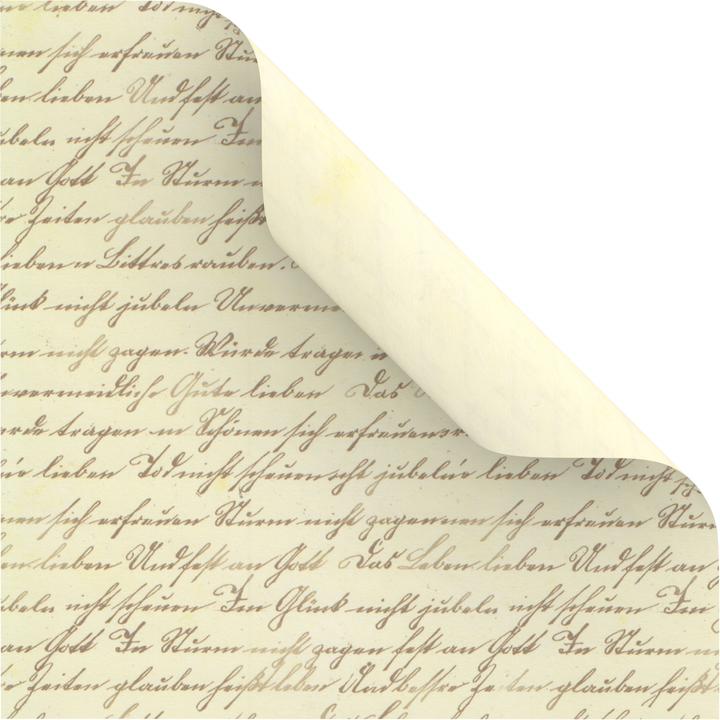 lieben Tod
sich erfreuen Stu
lieben Und fest an
ubeln nicht scheuen Im
an Gott In Sturm
Zeiten glauben heißt
lieben Bittres rauben.
Glück nicht jubeln Unverme
rm nicht zagen. Würde tragen
nvermeidliche Gute lieben Das
rde tragen im Schönen sich erfreuen
lieben Tod nicht scheuen cht jubeln lieben Tod nicht
nen sich erfreuen Sturm nicht zagen nen sich erfreuen Stur
en lieben Und fest an Gott Das Leben lieben Und fest an
ubeln nicht scheuen Im Glück nicht jubeln nicht scheuen Im
an Gott In Sturm nicht zagen fest an Gott In Sturm
re Zeiten glauben heißt leben Und bessre Zeiten glauben heißt